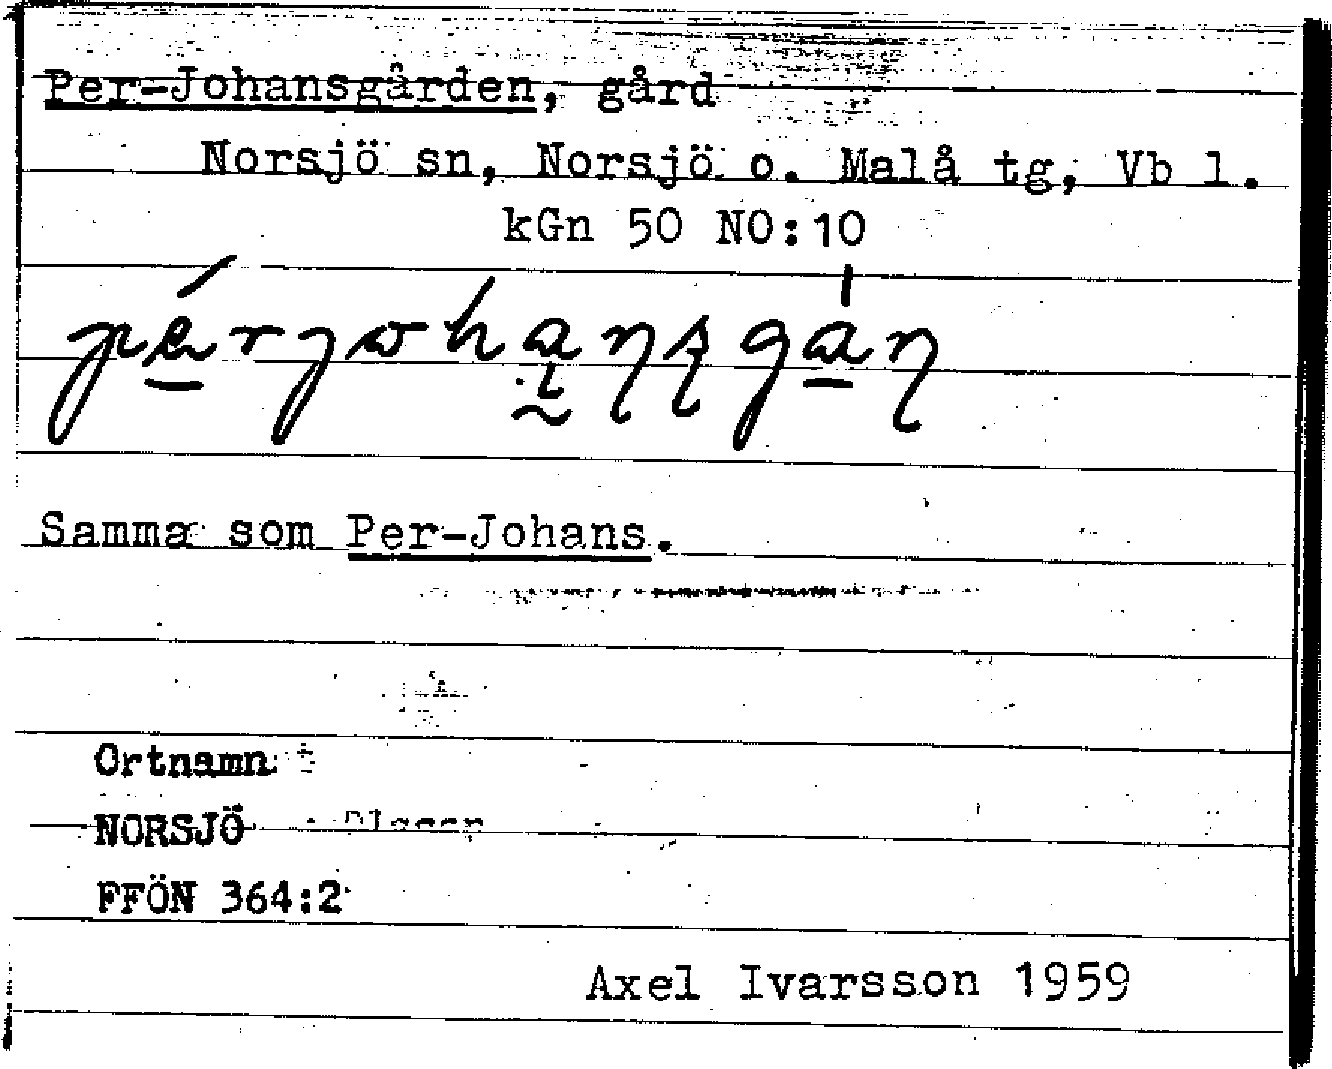 Per-Johansgården, gård
Norsjö sn, Norsjö o. Malå tg, Vb l.
kGn 50 NO:10
Samma som Per-Johans.
Ortnamn
NORSJÖ
FFÖN 364:2
Axel Ivarsson 1959